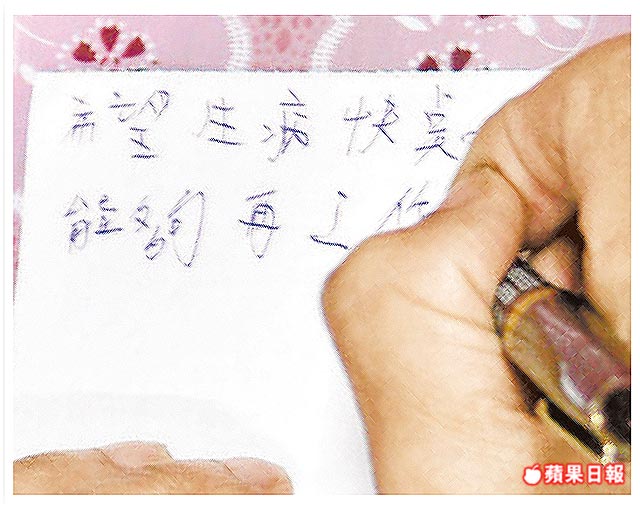 希望生病快點
能夠再工作
蘋果日報